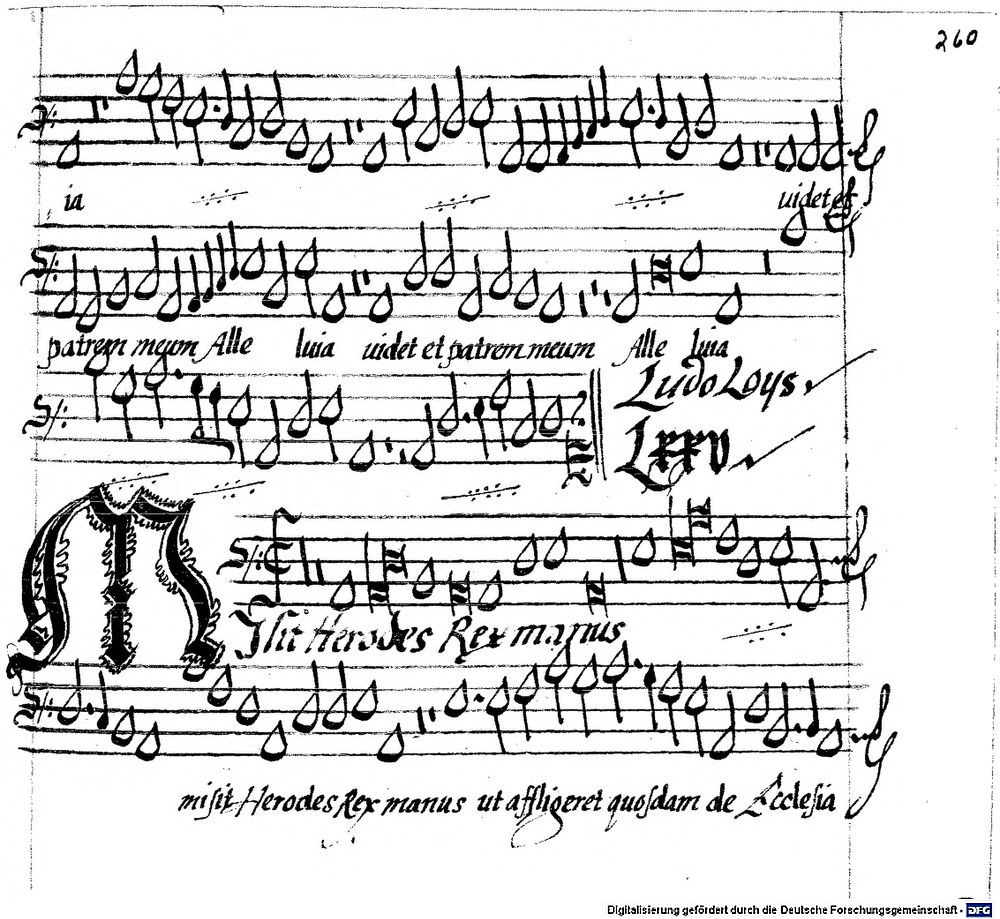 260
ia uidet et
patrem meum Alle luia uidet et patrem meum Alle luia
Ludo Loys.
Lxxv.
Misit Herodes Rex manus
misit Herodes Rex manus ut affligeret quosdam de Ecclesia
Digitalisierung gefördert durch die Deutsche Forschungsgemeinschaft - DFG